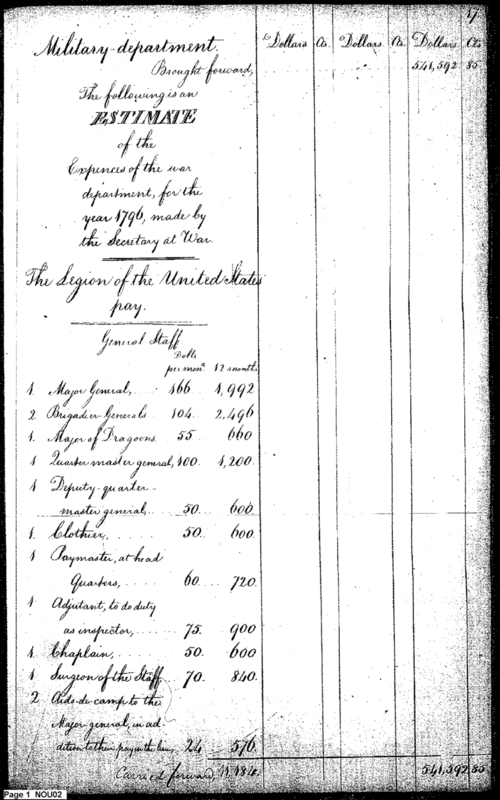 17
Military department.
Dollars Cts. Dollars. Cts. Dollars. Cts
Brought forward, 541,592 85
The following is an
ESTIMATE
of the
Expences of the war
department, for the
year 1796, made by
the Secretary at War.
The Legion of the United States
pay.
General Staff
Dolls
per mon. 12 months
1. Major General, 166 1,992
2 Brigadier Generals 104. 2,496
1. Major of Dragoons 55 660
1 Quarter master general, 100. 1,200.
1 Deputy-quarter-
master general, 50. 600
1. Clothier, 50. 600.
1 Paymaster, at head
Quarters, 60. 720.
1 Adjutant, to do duty
as inspector, 75. 900
1. Chaplain, 50. 600
1. Surgeon of the Staff 70. 840.
2 Aids-de-camp to the
Major general, in ad
dition to their pay in the line, 24 576.
Carried forward, 11,184. 541,592 85
Page 1 NOU02